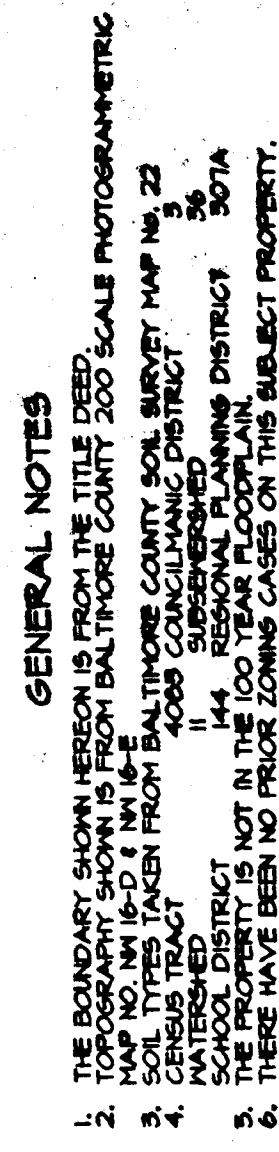 GENERAL NOTES
1. THE BOUNDARY SHOWN HEREON IS FROM THE TITLE DEED.
2. TOPOGRAPHY SHOWN IS FROM BALTIMORE COUNTY 200 SCALE PHOTOGRAMMETRIC
MAP NO. NW 16-D & NW 16-E
3. SOIL TYPES TAKEN FROM BALTIMORE COUNTY SOIL SURVEY MAP No. 22
4. CENSUS TRACT 4088 COUNCILMANIC DISTRICT 3
WATERSHED 11 SUBSEWERSHED 36
SCHOOL DISTRICT 144 REGIONAL PLANNING DISTRICT 307A
5. THE PROPERTY IS NOT IN THE 100 YEAR FLOODPLAIN.
6. THERE HAVE BEEN NO PRIOR ZONING CASES ON THIS SUBJECT PROPERTY.